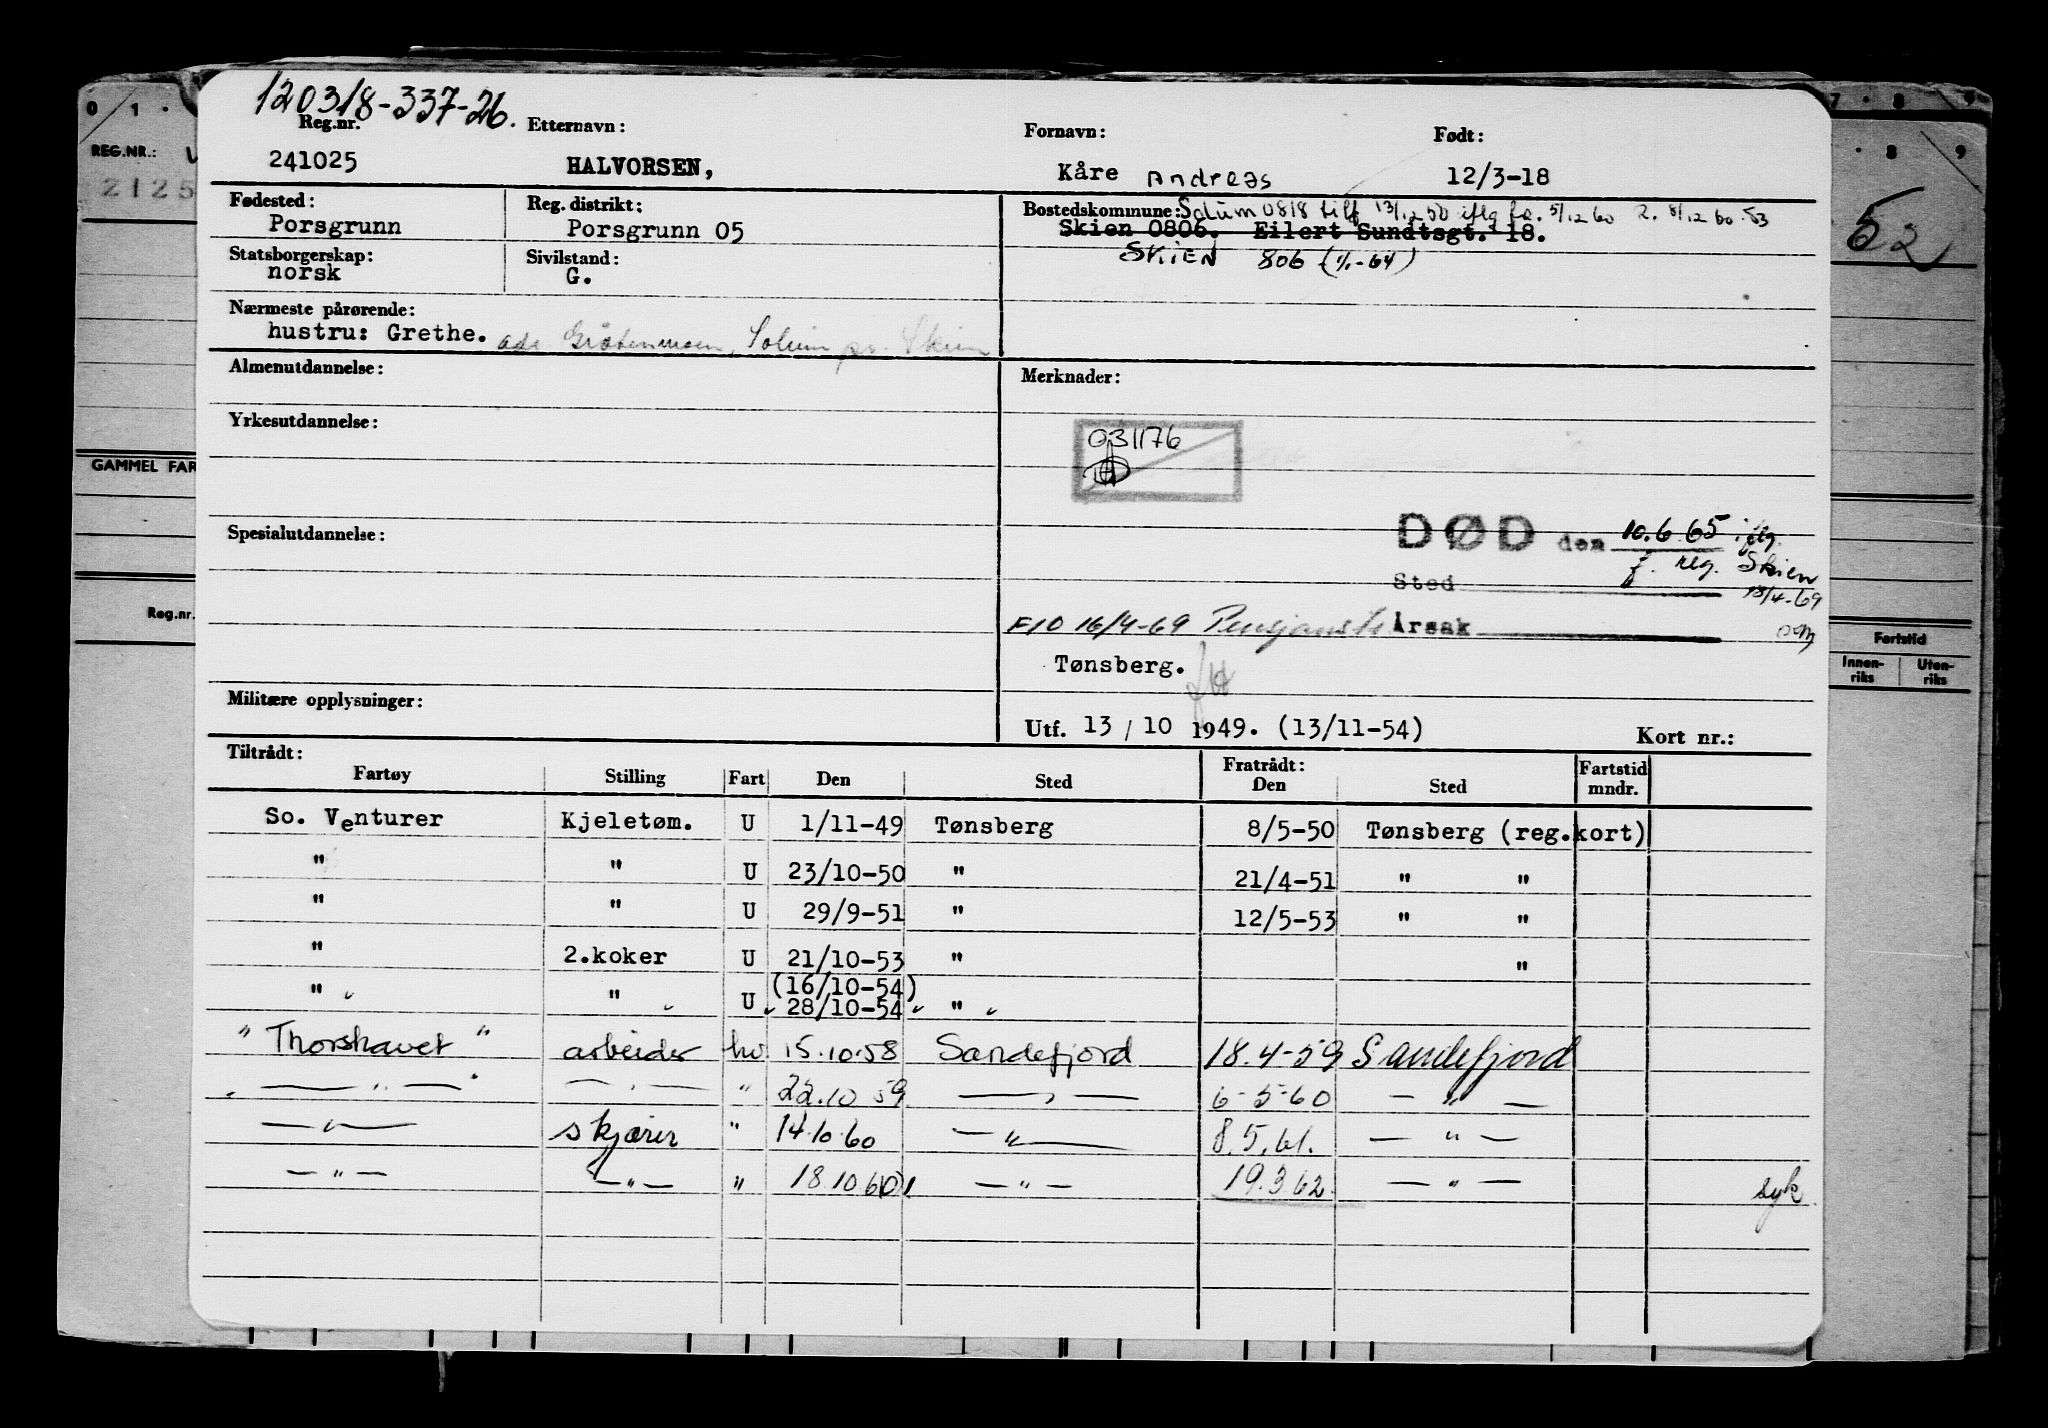 0 1 · 7 · 8 9
REG.NR.: · 8 9
2125
52
GAMMEL FAR
Reg.nr.
Fartstid
Innen-riks Uten-riks
120318-337-26.
Reg.nr. Etternavn: Fornavn: Født:
241025 HALVORSEN, Kåre Andreas 12/3-18
Fødested: Reg. distrikt: Bostedskommune: Solum 0818 tilf 13/12 50 iflg f.r. 5/12 60 2. 8/12 60 53
Porsgrunn Porsgrunn 05 Skien 0806. Eilert Sundtsgt. 18.
Statsborgerskap: Sivilstand: SKIEN 806 (1/1-64)
norsk G.
Nærmeste pårørende:
hustru: Grethe. adr. Solum pr. Skien
Almenutdannelse: Merknader:
Yrkesutdannelse:
031176
Spesialutdannelse: DØD den 10.6 65 iflg.
f. reg. Skien
Sted 18/4-69
F10 16/4-69 Årsak
Tønsberg.
Militære opplysninger:
Utf. 13 / 10 1949. (13/11-54) Kort nr.:
Tiltrådt: Fratrådt:
Fartøy Stilling Fart Den Sted Den Sted Fartstid mndr.
So. Venturer Kjeletøm. U 1/11-49 Tønsberg 8/5-50 Tønsberg (reg.kort)
" " U 23/10-50 " 21/4-51 " "
" " U 29/9-51 " 12/5-53 " "
" 2.koker U 21/10-53 " "
(16/10-54)
" " U 28/10-54 "
"Thorshavet" arbeider hv 15.10.58 Sandefjord 18.4-59 Sandefjord
— " — — " — " 22.10 59 — " — 6-5-60 — " —
— " — skjærer " 14.10.60 — " — 8.5.61. — " —
— " — — " — " 18.10.61 — " — 19.3 62. — " — syk